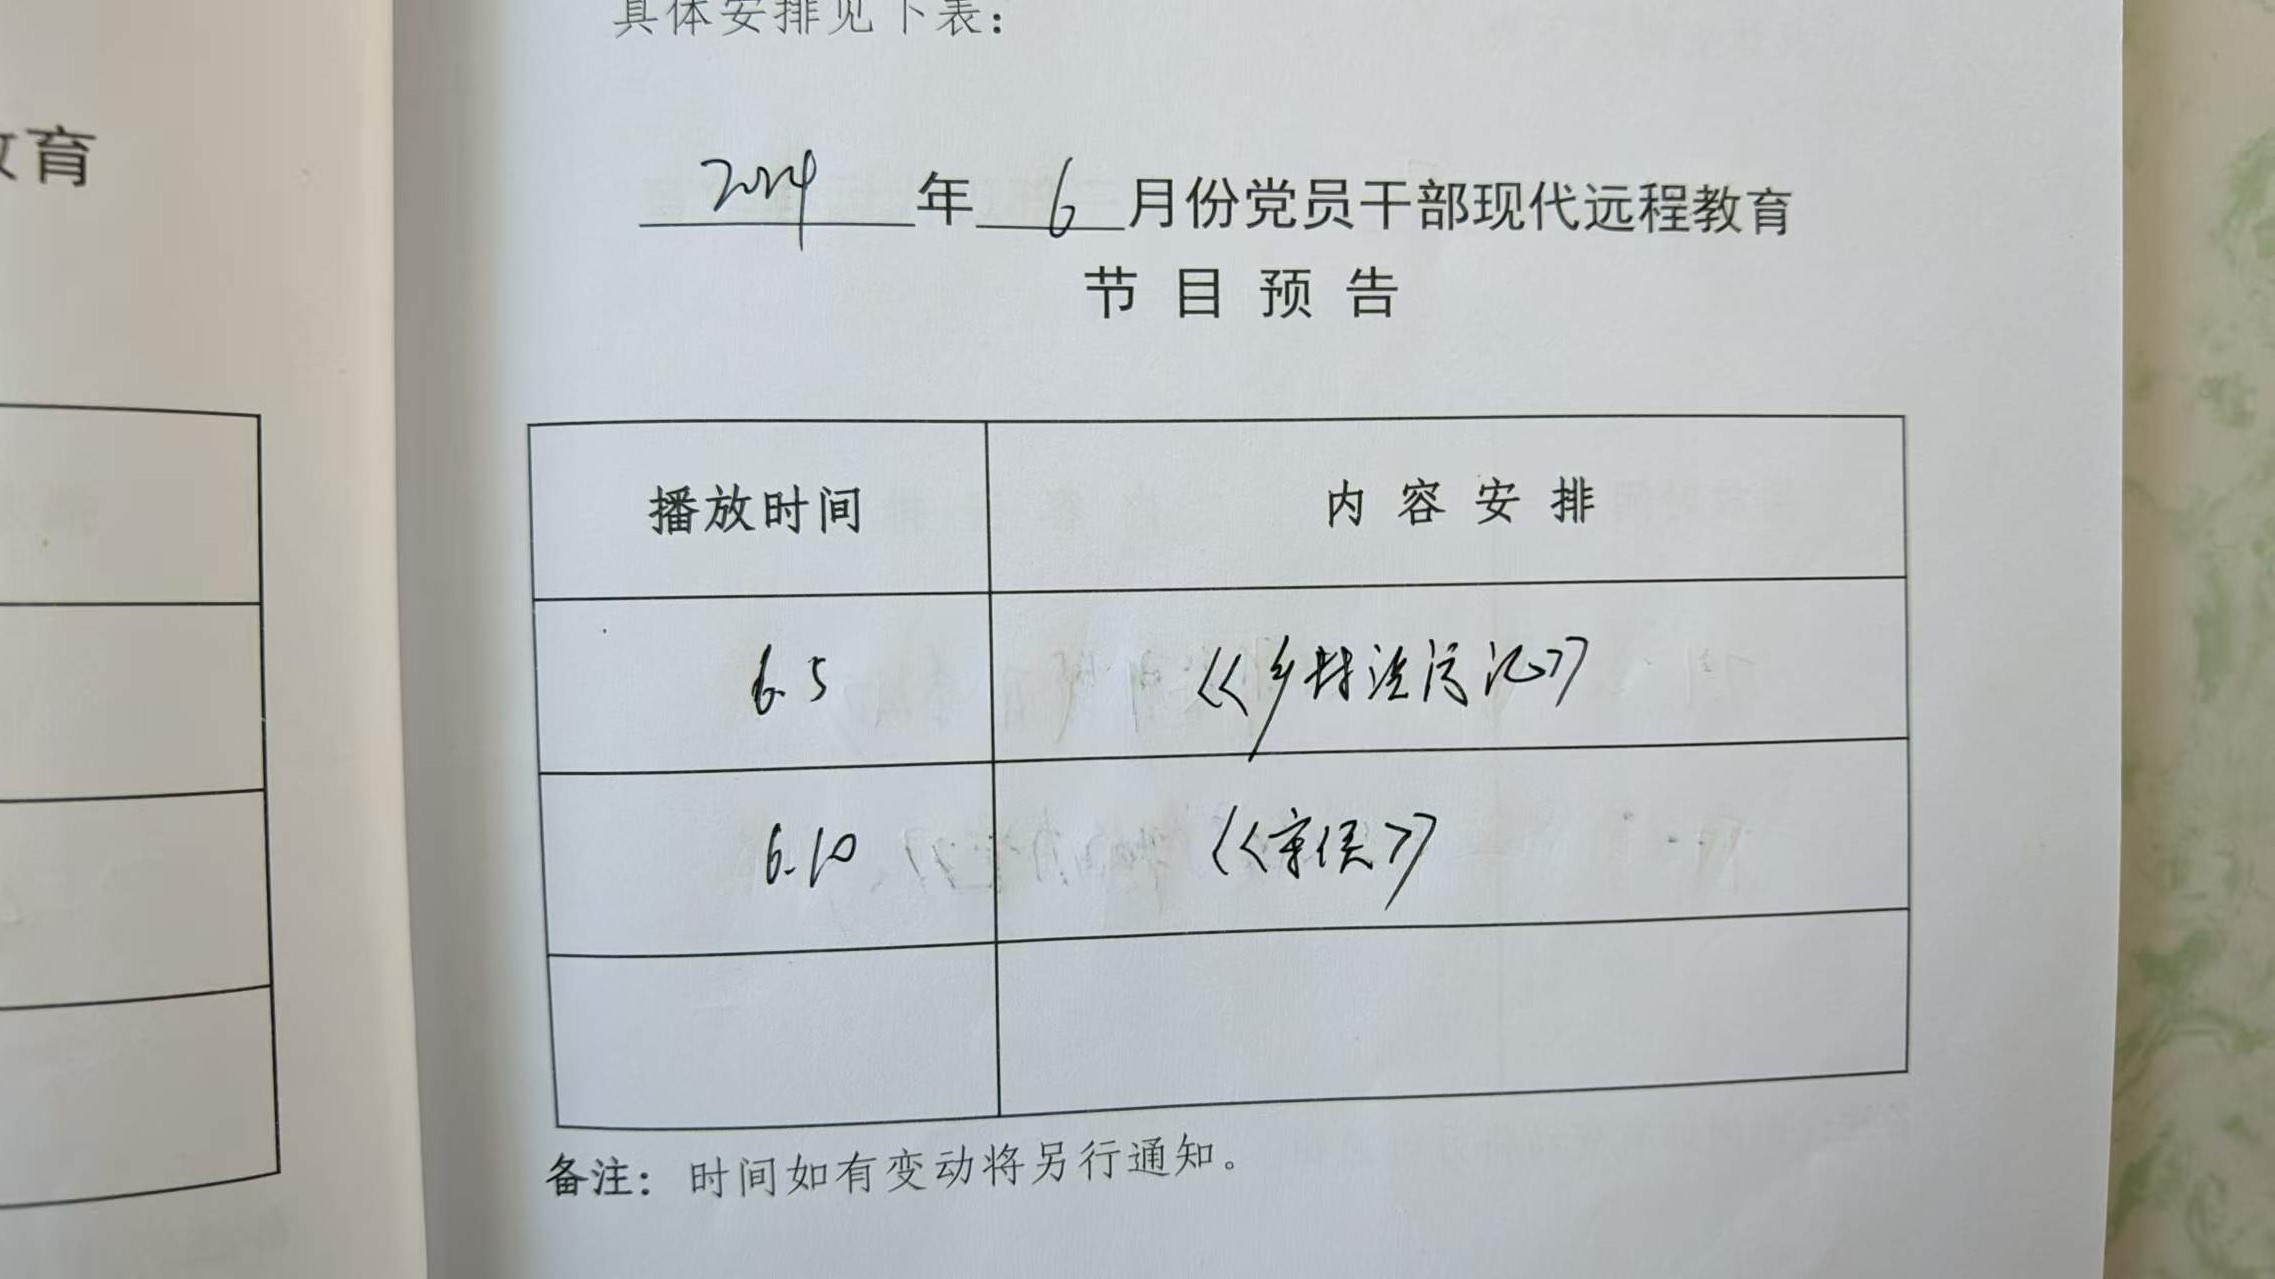 具体安排见下表：
教育
2024年6月份党员干部现代远程教育
节目预告
播放时间 内容安排
6.5 《乡村法官记》
6.10 《亲侯》
备注：时间如有变动将另行通知。